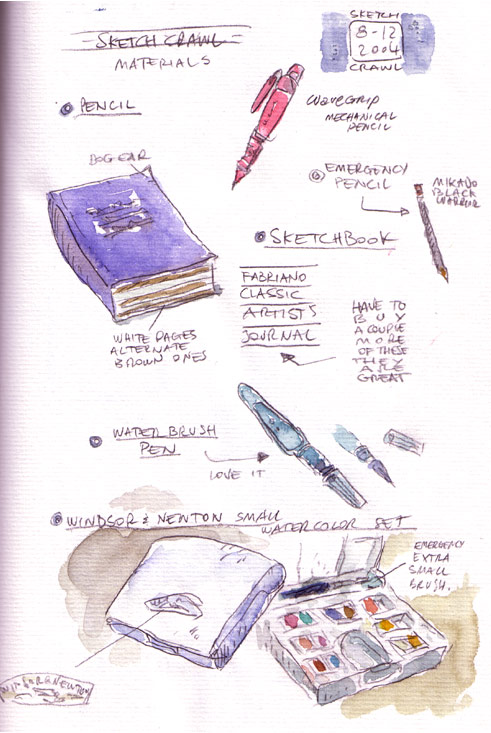 SKETCH CRAWL
MATERIALS
SKETCH
8-12
2004
CRAWL
PENCIL
WAVEGRIP
MECHANICAL
PENCIL
DOG EAR
EMERGENCY
PENCIL
MIKADO
BLACK
WARRIOR
SKETCHBOOK
FABRIANO
CLASSIC
ARTISTS
JOURNAL
WHITE PAGES
ALTERNATE
BROWN ONES
HAVE TO
BUY
A COUPLE
MORE
OF THESE
THEY
ARE
GREAT
WATER BRUSH
PEN
LOVE IT
WINDSOR & NEWTON SMALL
WATERCOLOR SET
EMERGENCY
EXTRA
SMALL
BRUSH.